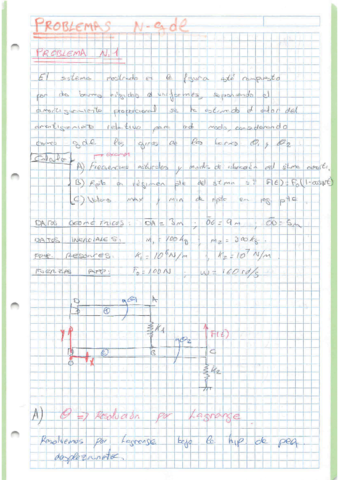 PROBLEMAS N-gdl
PROBLEMA N.1
El sistema mostrado en la figura está compuesto
por dos barras rígidas y uniformes, suponiendo el
amortiguamiento proporcional se ha estimado el valor del
amortiguamiento relativo para cada modo considerando
como gdl los giros de las barras θ1 y θ2
A) Frecuencias naturales y modos de vibración del stma
B) Rpta en régimen pte del stma si F(t) = F0(1-cosωt)
C) Valores max y min de rpta en reg pte
DATOS GEOMÉTRICOS: OA = 3m
DATOS INERCIALES: m1 = 100kg ; m2 = 200kg
K1 = 10^6 N/m ; K2 = 10^7 N/m
F0 = 100N ; ω = 160rd/s
θ1 A
K1
θ2 F(t)
B C
K2
A) θ ⇒ Resolución por Lagrange
Resolvemos por Lagrange bajo la hip de peq
desplazamientos.